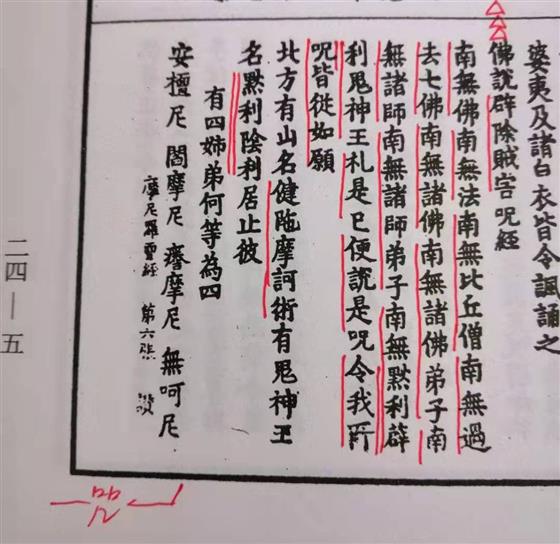 婆夷及諸白衣皆令諷誦之
佛說辟除賊害呪經
南無佛南無法南無比丘僧南無過
去七佛南無諸佛南無諸佛弟子南
無諸師南無諸師弟子南無黙利薜
利鬼神王礼是已便說是呪令我所
呪皆從如願
北方有山名健陁摩訶術有鬼神王
名黙利陰利居止彼
有四姊弟何等為四
安檀尼 閻摩尼 䜆摩尼 無呵尼
摩尼羅亶經 第六張 讚
二四—五